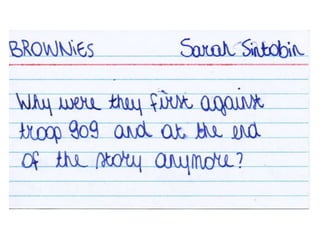 BROWNIES Sarah Sintobin
Why were they first against
troop 909 and at the end
of the story anymore?